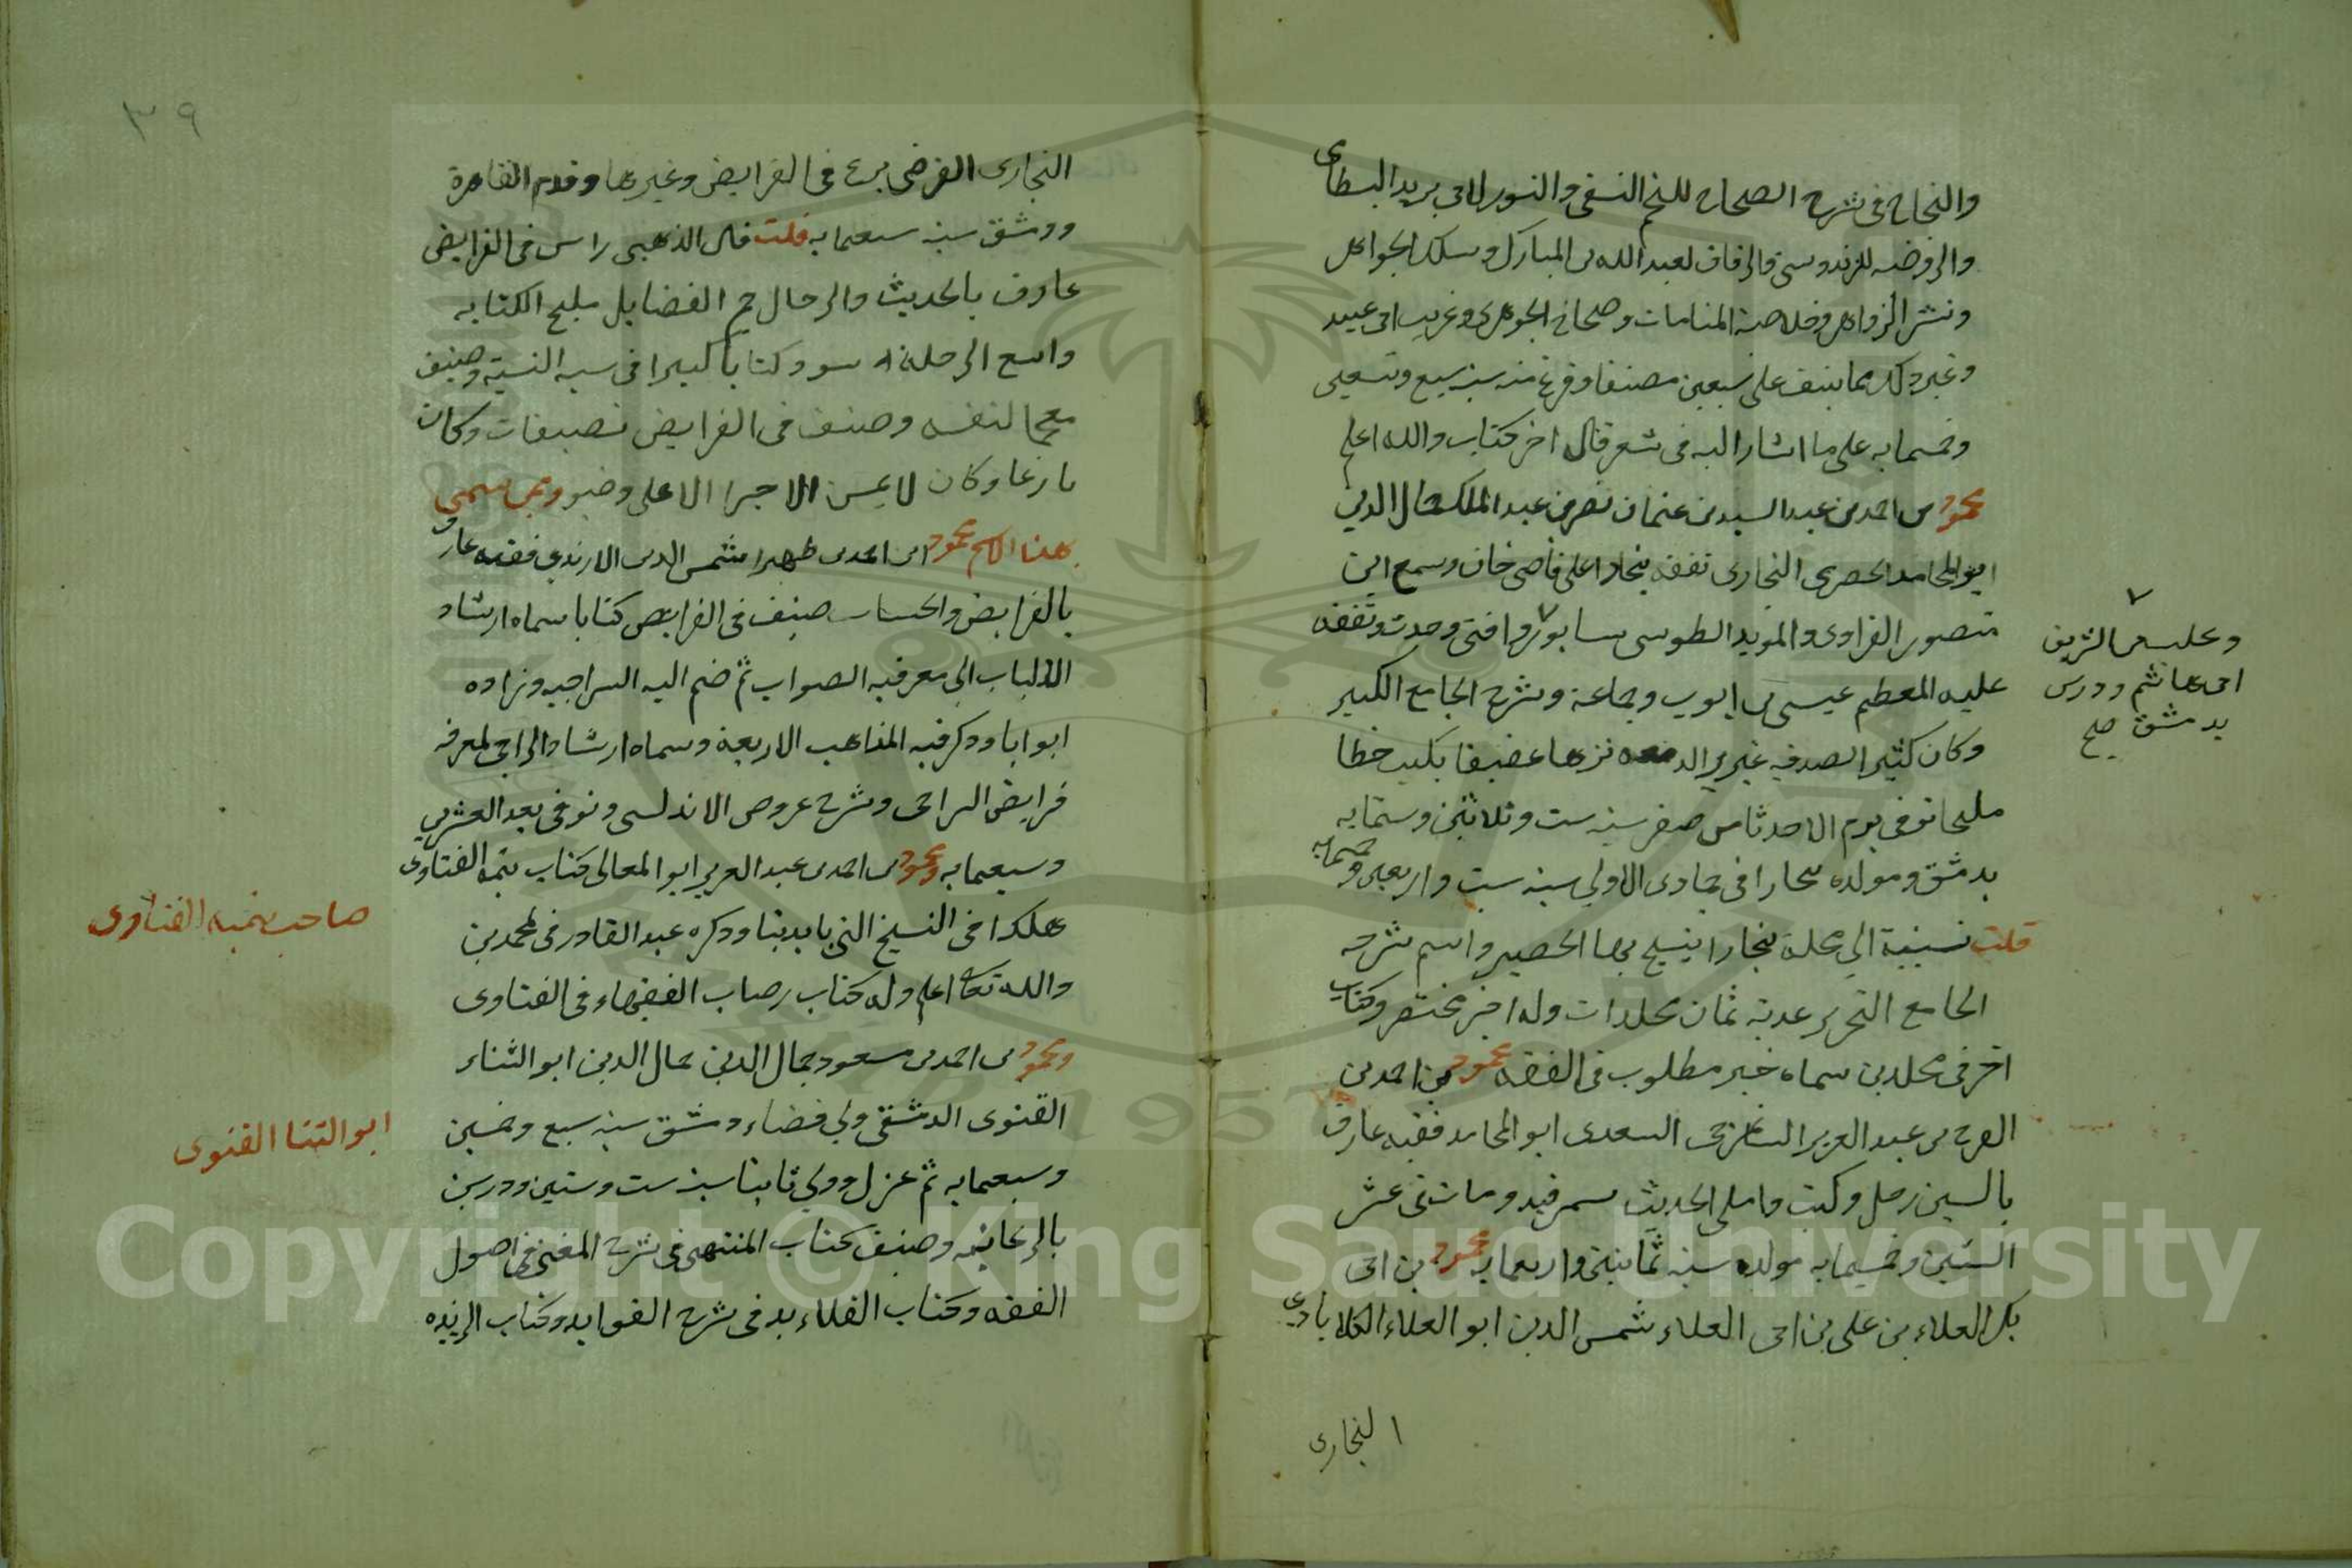 والنجاح فى شرح الصحاح للنجم النسفى والنور لابى يزيد البسطامى
والروضه للزندوسى والرقاق لعبد الله بن المبارك وسلك الجواهر
ونشر الزواهر وخلاصة المنامات وصحاح الجوهرى وغريب ابى عبيد
وغير ذلك مما ينيف على سبعين مصنفا وفرغ منه سنة سبع وتسعين
وخمسمايه على ما اشار اليه فى شعر قال اخر كتاب والله اعلم
محمود بن احمد بن عبد السيد بن عثمان نصر بن عبد الملك جمال الدين
ابو المحامد الحصيرى البخارى تفقه ببخارا على قاضى خان وسمع ابن
منصور الفراوى والمويد الطوسى بنيسابور وافتى وحدث وتفقه
وعليه من الشريف
ابى هاشم ودرس
بدمشق صح
عليه المعظم عيسى بن ايوب وجماعة وشرح الجامع الكبير
وكان كثير الصدقه غزير الدمعه نزها عفيفا يكتب خطا
مليحا توفى يوم الاحد ثامن صفر سنه ست وثلاثين وستمايه
بدمشق ومولده ببخارا فى جمادى الاولى سنه ست واربعين وخمسمايه
قلت نسبة الى محلة ببخارا ينسج بها الحصير واسم شرحه
الجامع التحرير عدته ثمان مجلدات وله اخر مختصر وكتاب
اخر فى مجلدين سماه خير مطلوب فى الفقه محمود بن احمد بن
الفرج بن عبد العزيز الساغرجى السعدى ابو المحامد فقيه عارف
بالسين رحل وكتب واملى الحديث بسمرقند ومات فى عشر
الستين وخمسمايه مولده سنه ثمانين واربعمايه محمود بن ابى
بكر العلاء بن على بن ابى العلاء شمس الدين ابو العلاء الكلاباذى
البخارى
٣٩
البخارى الفرضى برع فى الفرايض وغيرها وقدم القاهرة
ودمشق سنه سبعمايه قلت قال الذهبى راس فى الفرايض
عارف بالحديث والرجال جم الفضايل مليح الكتابه
واسع الرحلة سود كتابا كبيرا فى النسبة وصنف
معجما لنفسه وصنف فى الفرايض تصنيفات وكان
بارعا وكان لا يمس الاجزا الا على وضو وممن سمى
هذا الاسم محمود ابن احمد بن ظهير شمس الدين الارندى فقيه عارف
بالفرايض والحساب صنف فى الفرايض كتابا سماه ارشاد
الالباب الى معرفه الصواب ثم ضم اليه السراجيه وزاده
ابوابا وذكر فيه المذاهب الاربعة وسماه ارشاد الراجى لمعرفه
فرايض السراجى وشرح عروض الاندلسى وتوفى بعد العشرين
وسبعمايه ومحمود بن احمد بن عبد العزيز ابو المعالى كتاب تتمة الفتاوى
صاحب تتمه الفتاوى
هكذا فى النسخ التى بايدينا وذكره عبد القادر فى محمد بن
والله تعالى اعلم وله كتاب نصاب الفقهاء فى الفتاوى
ومحمود بن احمد بن مسعود جمال الدين جمال الدين ابو الثناء
القنوى الدمشقى ولى قضاء دمشق سنه سبع وخمسين
ابو الثنا القنوى
وسبعمايه ثم عزل وولى ثانيا سنه ست وستين ودرس
بالريحانيه وصنف كتاب المنتهى فى شرح المغنى فى اصول
الفقه وكتاب القلائد فى شرح العقايد وكتاب الزبده
Copyright © King Saud University
1957